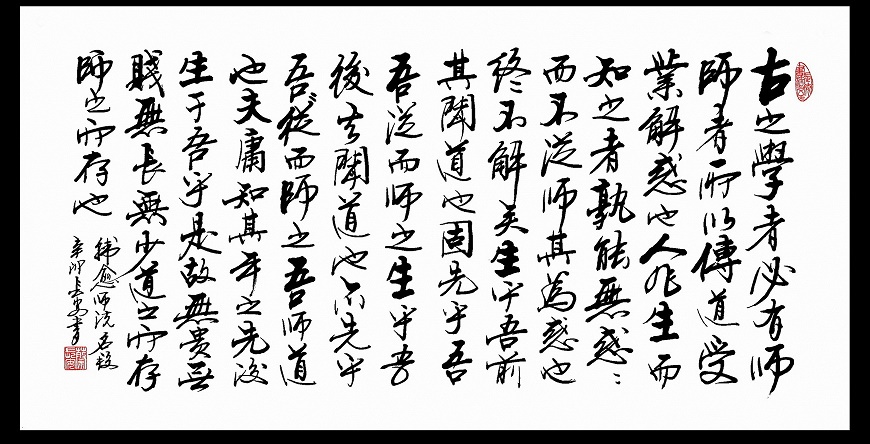 古之學者必有師
師者所以傳道受
業解惑也人非生而
知之者孰能無惑〻
而不從師其為惑也
終不解矣生乎吾前
其聞道也固先乎吾
吾從而師之生乎吾
後其聞道也亦先乎
吾〻從而師之吾師道
也夫庸知其年之先後
生于吾乎是故無貴無
賤無長無少道之所存
師之所存也
韓愈師說名段
辛卯長安書